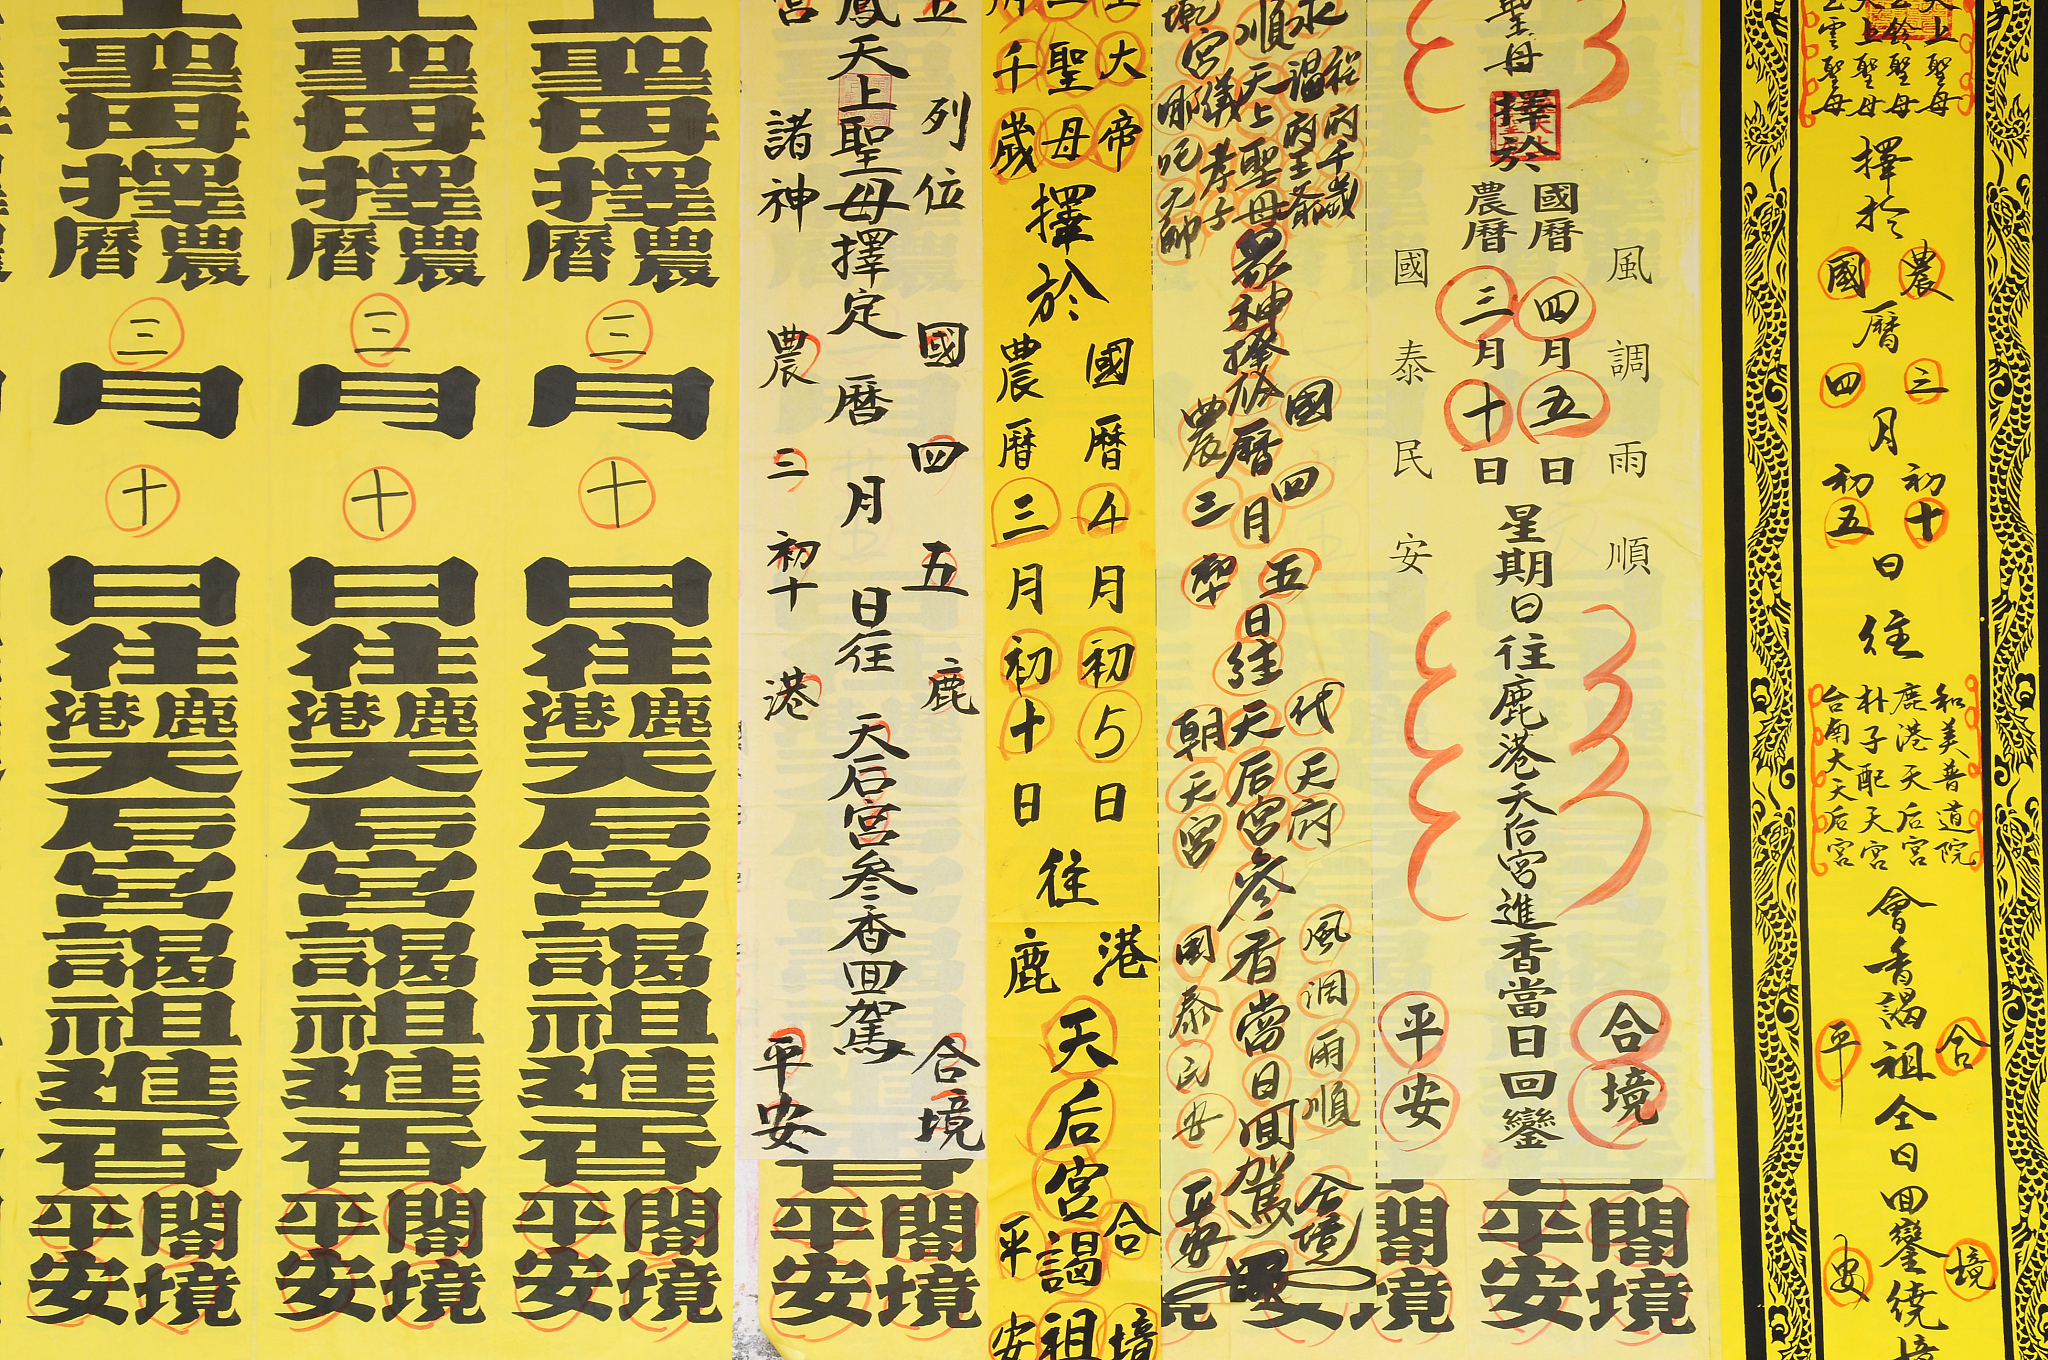 上聖母
鈴聖母
上聖母
雲聖母
擇於
農國
曆
三四
月
初十
初五
日往
和美普道院
鹿港天后宮
朴子配天宮
台南大天后宮
會香謁祖仝日回鑾繞境
合境
平安
風調雨順
聖母擇於
國曆四月五日
農曆三月十日
星期日往鹿港天后宮進香當日回鑾
國泰民安
合境
平安
程府千歲
水
溫府王爺
順天上聖母眾神擇於
宮儀孝子
哪吒元帥
國農
曆
四三
月
五
初十
日往
代天府
天后宮
朝天宮
參香當日回駕
風調雨順
國泰民安
合境
平安
大帝
聖母
千歲
擇於
國曆4月初5日
農曆三月初十日
往
港鹿
天后宮謁祖
合境
平安
列位
鳳天上聖母擇定
諸神
國農
曆
四三
月
五
初十
日往
鹿港
天后宮參香回駕
合境
平安
上聖母擇
農曆
三月十日往
鹿港
天后宮
謁祖
進香
闔境
平安
上聖母擇
農曆
三月十日往
鹿港
天后宮
謁祖
進香
闔境
平安
上聖母擇
農曆
三月十日往
鹿港
天后宮
謁祖
進香
闔境
平安
闔境
平安
闔境
平安